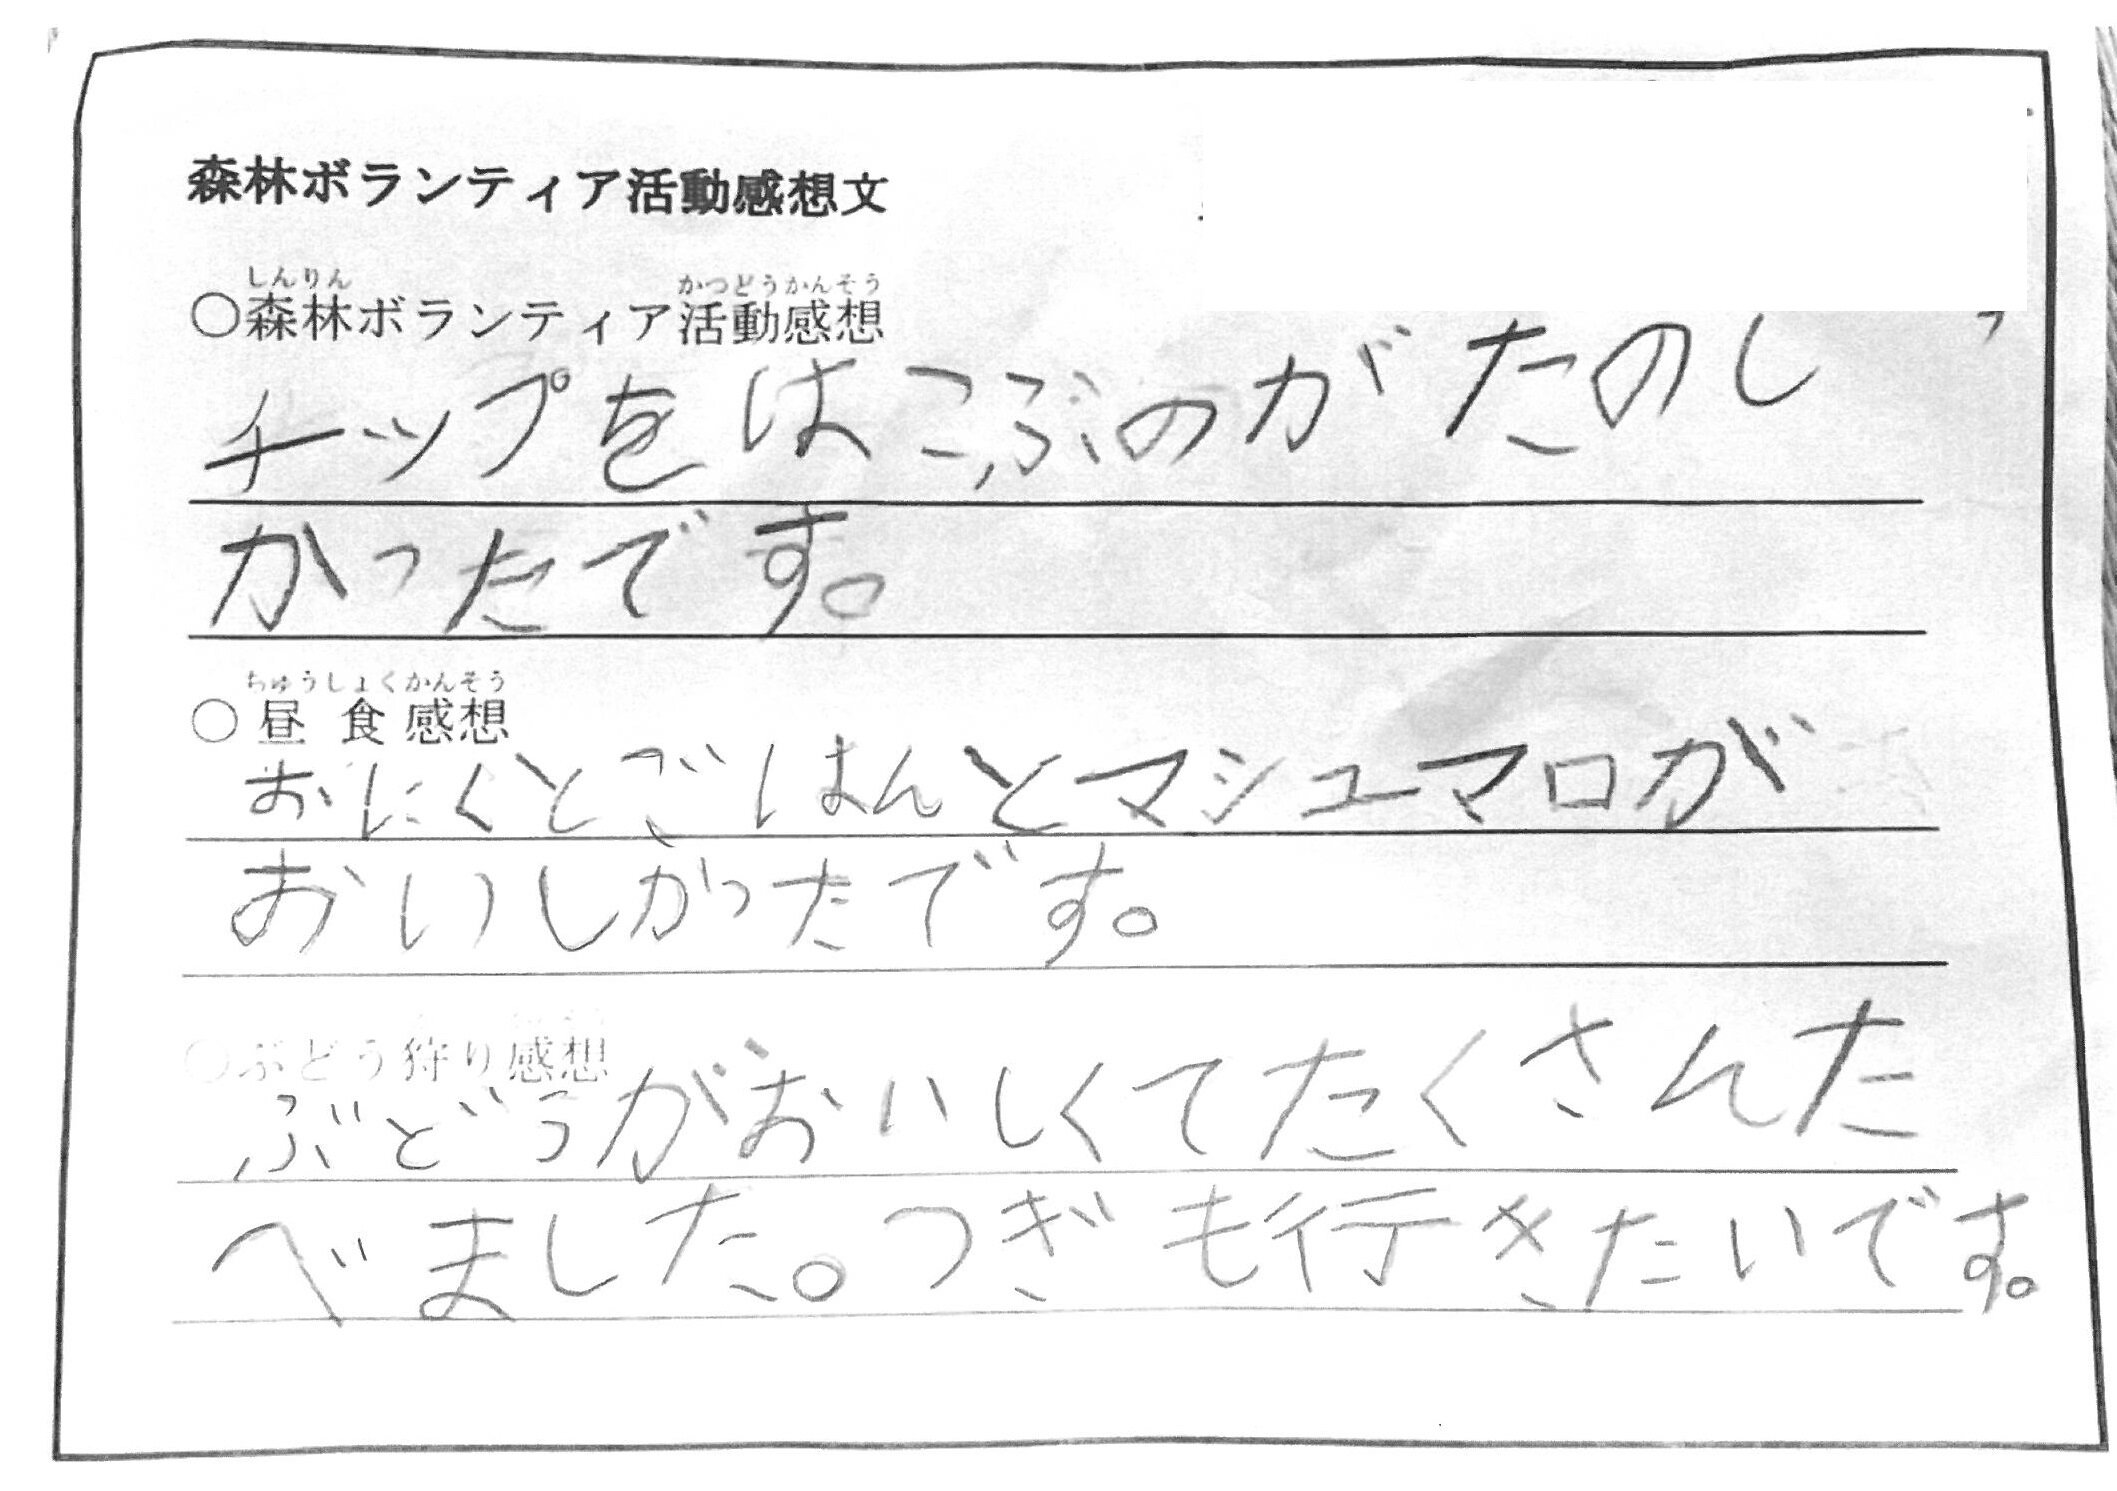 森林ボランティア活動感想文
しんりん かつどうかんそう
○森林ボランティア活動感想
チップをはこぶのがたのし
かったです。
ちゅうしょくかんそう
○昼食感想
おにくとごはんとマシュマロが
おいしかったです。
○ぶどう狩り感想
ぶどうがおいしくてたくさんた
べました。つぎも行きたいです。